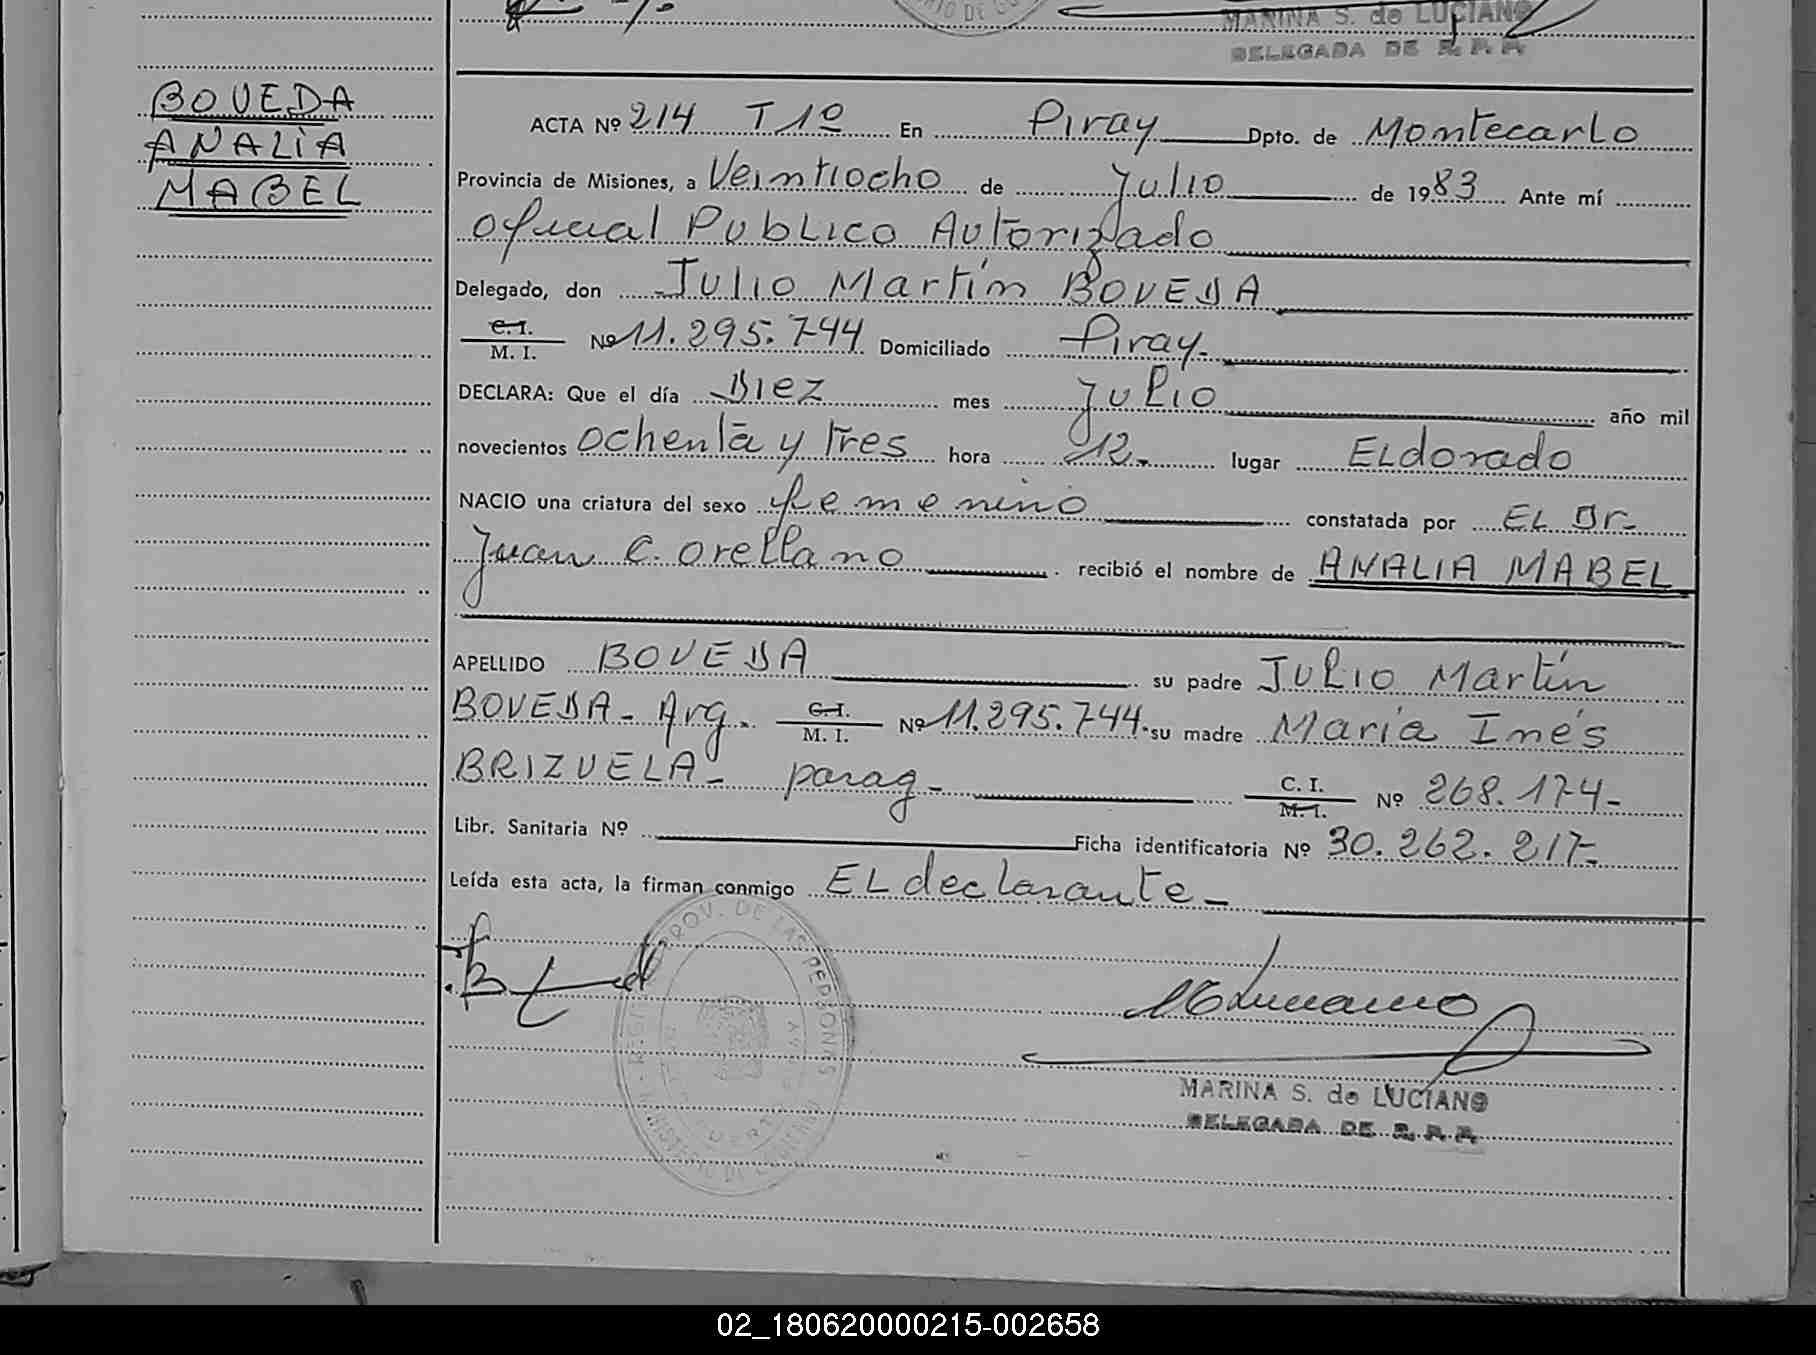 MARINA S. de LUCIANO
DELEGADA DE R. P. P.
BOVEDA
ANALÍA
MABEL
ACTA Nº 214 T 1º En Piray Dpto. de Montecarlo
Provincia de Misiones, a Veintiocho de Julio de 1983 Ante mí
Oficial Publico Autorizado
Delegado, don Julio Martín BOVEDA
C.I.
M. I. Nº 11.295.744 Domiciliado Piray-
DECLARA: Que el día Diez mes Julio año mil
novecientos ochenta y tres hora 12- lugar ELdorado
NACIO una criatura del sexo femenino constatada por EL Dr-
Juan C. Orellano recibió el nombre de ANALIA MABEL
APELLIDO BOVEDA su padre Julio Martín
BOVEDA- Arg- C.I.
M. I. Nº 11.295.744- su madre María Inés
BRIZUELA- parag- C. I.
M. I. Nº 268.174-
Libr. Sanitaria Nº Ficha identificatoria Nº 30.262.217-
Leída esta acta, la firman conmigo EL declarante-
PROV. DE LAS PERSONAS
MARINA S. de LUCIANO
DELEGADA DE R. P. P.
02_180620000215-002658